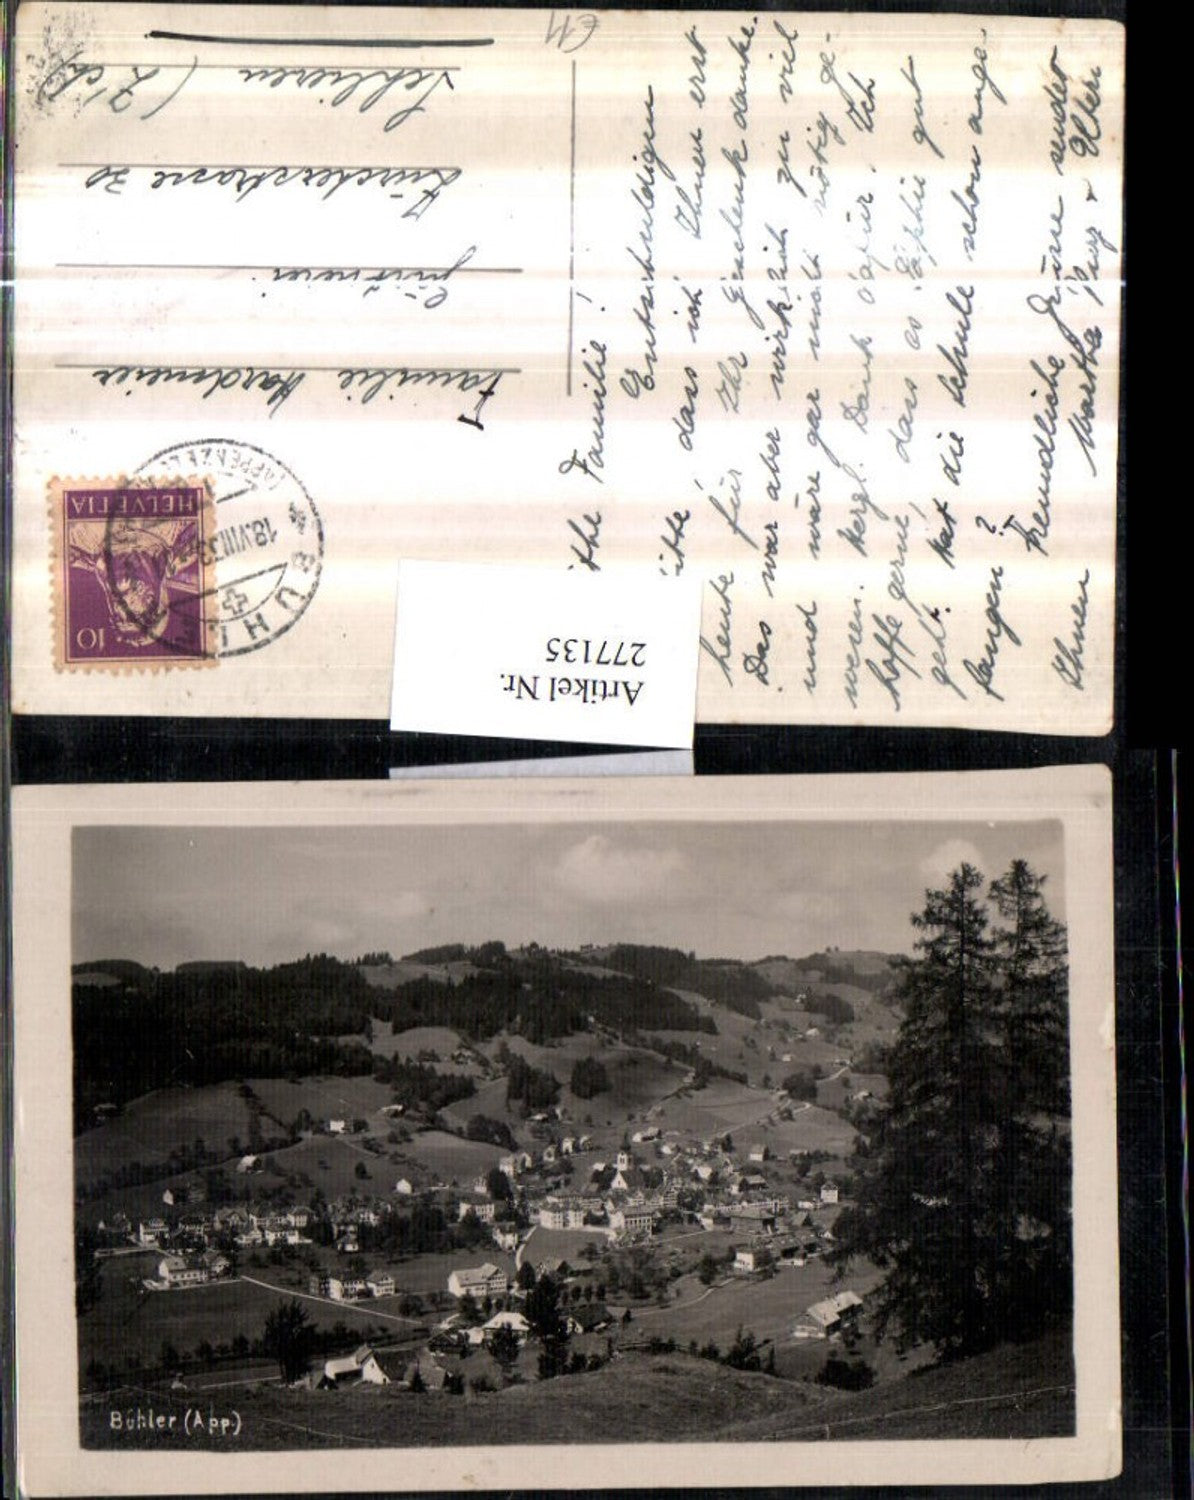 €11
Familie Hardmeier
Gärtnerei
Zürcherstrasse 20
Schlieren (Zch)
HELVETIA
10
BÜHLER
(APPENZELL)
18.VIII.33
Artikel Nr.
277135
Familie!
Entschuldigen
bitte, dass ich Ihnen erst
heute für Ihr Geschenk danke.
Das war aber wirklich zu viel
und wäre gar nicht nötig ge-
wesen. Herzl. Dank dafür. Ich
hoffe gerne, dass es Sophie gut
geht. Hat die Schule schon ange-
fangen?
Freundliche Grüsse sendet
Ihnen Martha &
Bühler (App.)